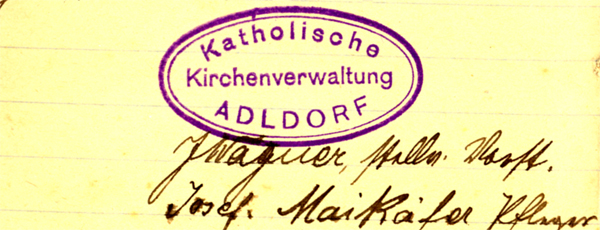 Katholische
Kirchenverwaltung
ADLDORF
J Wagner, stellv. Vorst.
Josef Maikäfer Pfleger